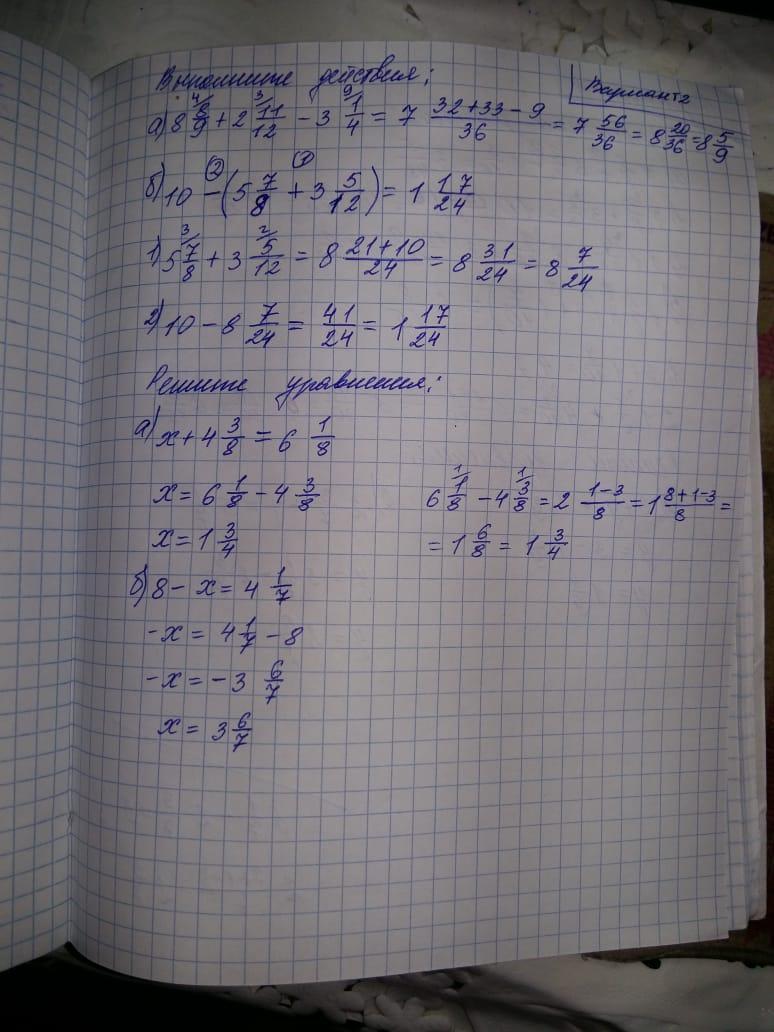 Выполните действия:
Вариант 2
а) 8 8/9 + 2 11/12 - 3 1/4 = 7 (32+33-9)/36 = 7 56/36 = 8 20/36 = 8 5/9
б) 10 - (5 7/8 + 3 5/12) = 1 17/24
1) 5 7/8 + 3 5/12 = 8 (21+10)/24 = 8 31/24 = 8 7/24
2) 10 - 8 7/24 = 41/24 = 1 17/24
Решите уравнения:
а) x + 4 3/8 = 6 1/8
x = 6 1/8 - 4 3/8
6 1/8 - 4 3/8 = 2 (1-3)/8 = 1 (8+1-3)/8 =
x = 1 3/4
= 1 6/8 = 1 3/4
б) 8 - x = 4 1/7
-x = 4 1/7 - 8
-x = -3 6/7
x = 3 6/7